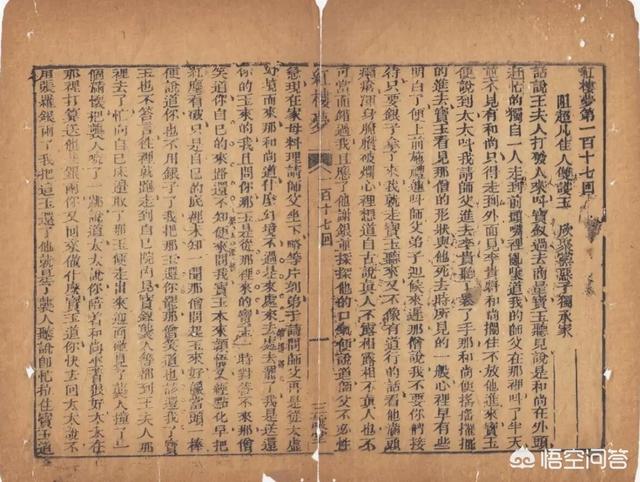 紅樓夢第一百十七回
阻超凡佳人雙護玉 欣聚黨惡子獨承家
話說王夫人打發人來叫寶釵過去商量寶玉聽見說是和尚在外頭
趕忙的獨自一人走到前頭嘴裡亂嚷道我的師父在那裡叫了半天
並不見有和尚只得走到外面見李貴將和尚攔住不放他進來寶玉
便說道太太叫我請師父進去李貴聽了鬆了手那和尚便搖搖擺擺
的進去寶玉看見那僧的形狀與他死去時所見的一般心裡早有些
明白了便上前施禮連叫師父弟子迎候來遲那僧說我不要你們接
待只要銀子拿了來我就走寶玉聽來又不像有道行的話看他滿頭
癩瘡渾身腌臢破爛心裡想道自古說真人不露相露相不真人也不
可當面錯過我且應了他謝銀並探探他的口氣便說道師父不必性
急現在家母料理請師父坐下略等片刻弟子請問師父可是從太虛
幻境而來那和尚道什麼幻境不過是來處來去處去罷了我是送還
你的玉來的我且問你那玉是從那裡來的寶玉一時對答不來那僧
笑道你自己的來路還不知便來問我寶玉本來穎悟又經點化早把
紅塵看破只是自己的底裡未知一聞那僧問起玉來好像當頭一棒
便說道你也不用銀子了我把那玉還你罷那僧笑道也該還我了寶
玉也不答言往裡就跑走到自己院內見寶釵襲人等都到王夫人那
裡去了忙向自己床邊取了那玉便走出來迎面碰見了襲人撞了一
個滿懷把襲人唬了一跳說道太太說你陪着和尚坐着很好太太在
那裡打算送他些銀兩你又回來做什麼寶玉道你快去回太太說不
用張羅銀兩了我把這玉還了他就是了襲人聽說即忙拉住寶玉道
紅樓夢
一百十七回
一
悟空问答